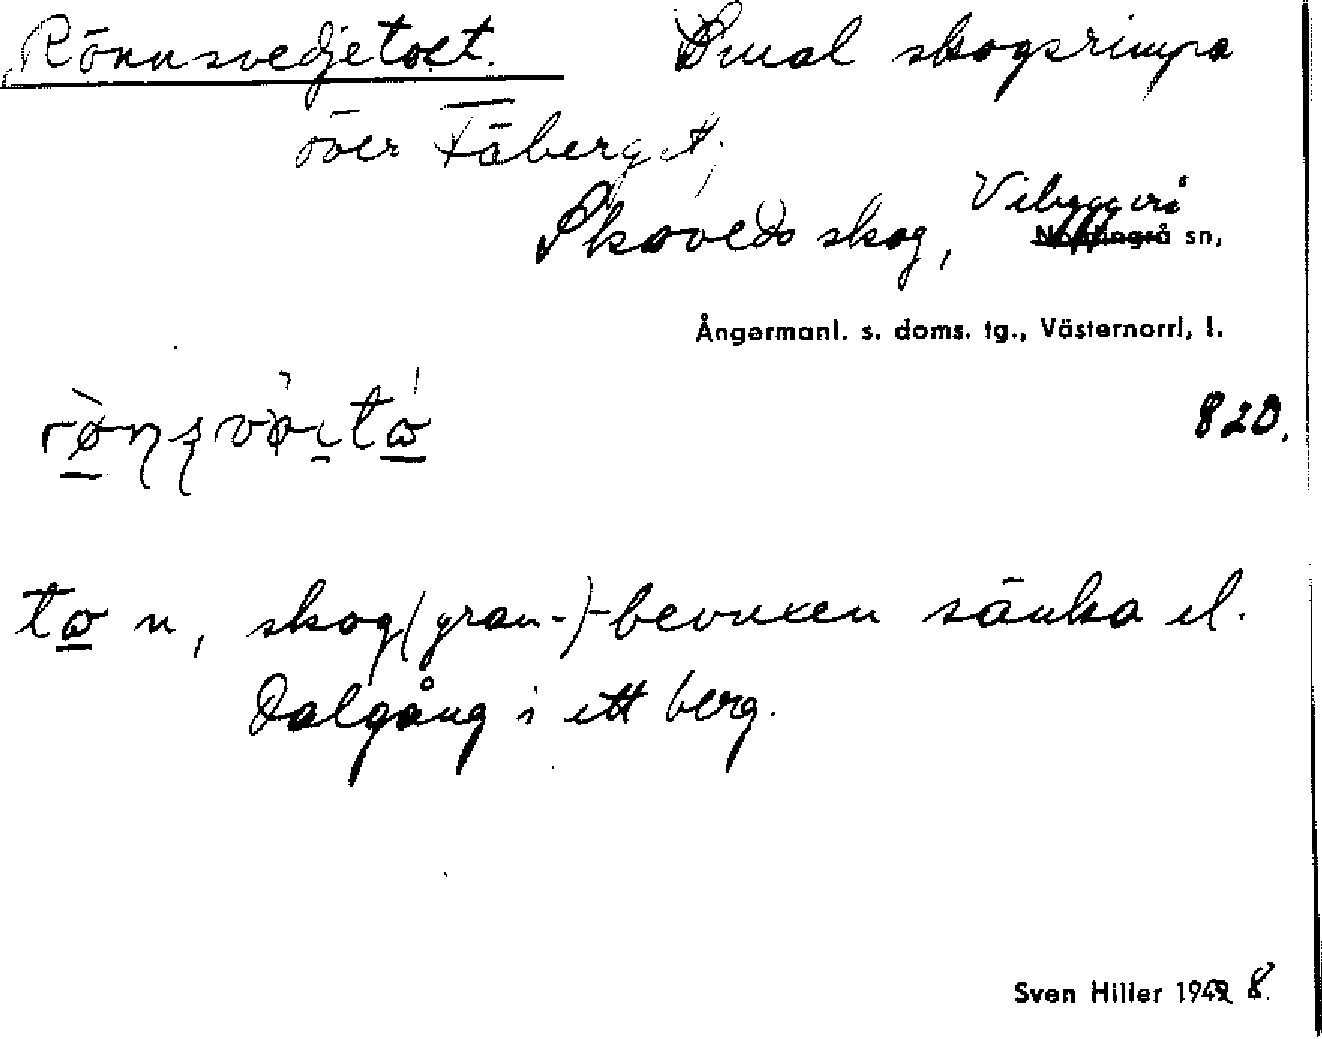 Rönnsvedjetoet. Smal skogsrimpa
över Fäberget,
Skoveds skog, Vibyggerå
Nordingrå sn,
Ångermanl. s. doms. tg., Västernorrl, l.
820.
to n, skog(gran-)-bevuxen sänka el.
dalgång i ett berg.
Sven Hiller 1942 8.